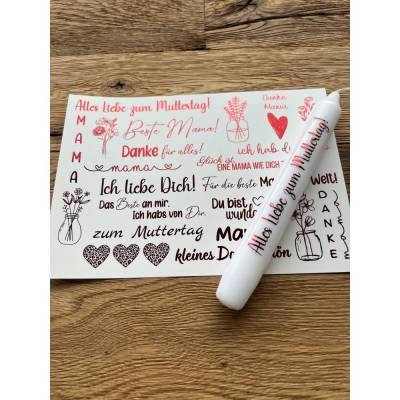 Alles Liebe zum Muttertag!
MAMA
Beste Mama!
Danke Mama
Danke für alles!
ich hab d
mama
Glück ist
EINE MAMA WIE DICH
Ich liebe Dich!
Für die beste Ma
Welt!
Das Beste an mir.
Ich habs von Dir.
Du bist
wund
DANKE
zum Muttertag
Ma
kleines D
ön
Alles Liebe zum Muttertag!